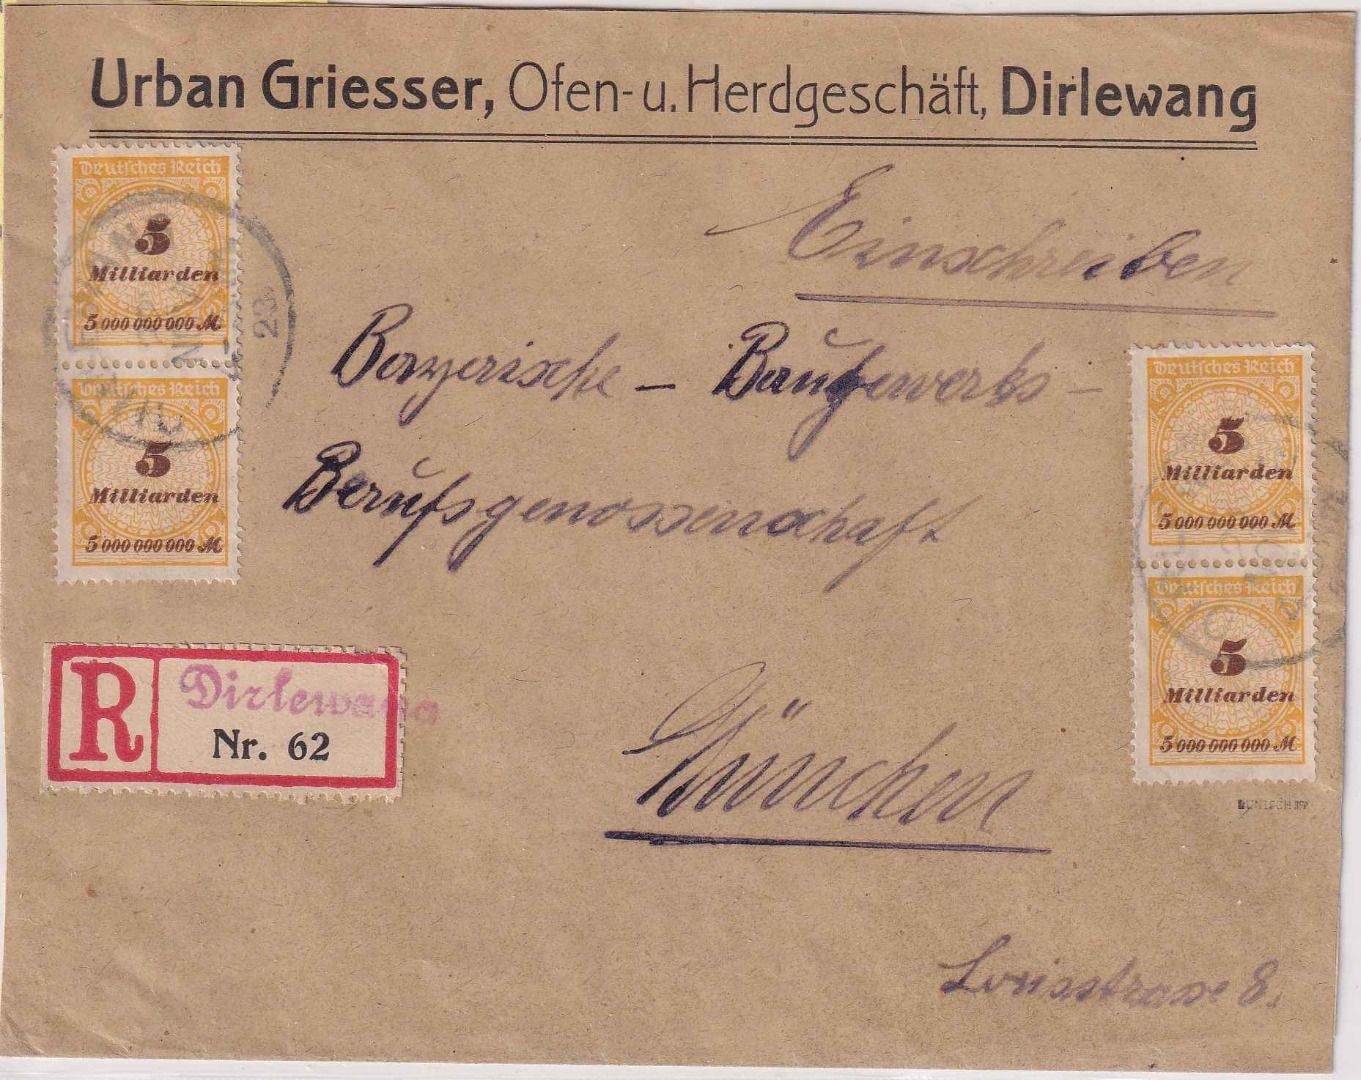 Urban Griesser, Ofen- u. Herdgeschäft, Dirlewang
Einschreiben
Deutsches Reich
5
Milliarden
5 000 000 000 M
Deutsches Reich
5
Milliarden
5 000 000 000 M
23
Bayerische – Baugewerks-
Berufsgenossenschaft
Deutsches Reich
5
Milliarden
5 000 000 000 M
Deutsches Reich
5
Milliarden
5 000 000 000 M
R
Dirlewang
Nr. 62
München
Loristrasse 8.